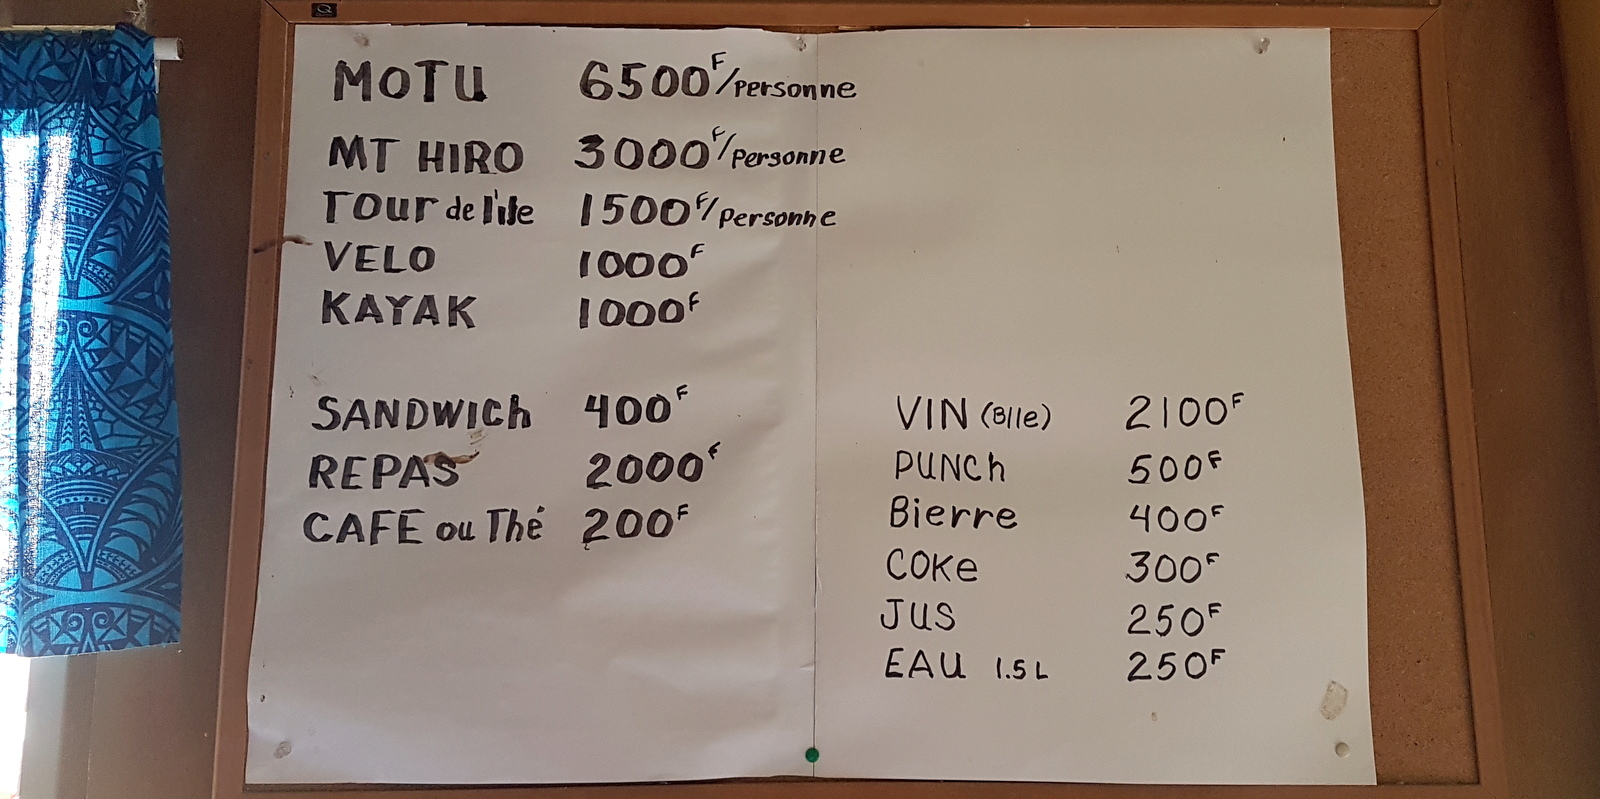 MOTU 6500F/personne
MT HIRO 3000F/Personne
TOUR de l'ile 1500F/personne
VELO 1000F
KAYAK 1000F
SANDWICh 400F
REPAS 2000F
CAFE ou Thé 200F
VIN (Blle) 2100F
PUNCh 500F
Bierre 400F
COKe 300F
JUS 250F
EAU 1.5L 250F